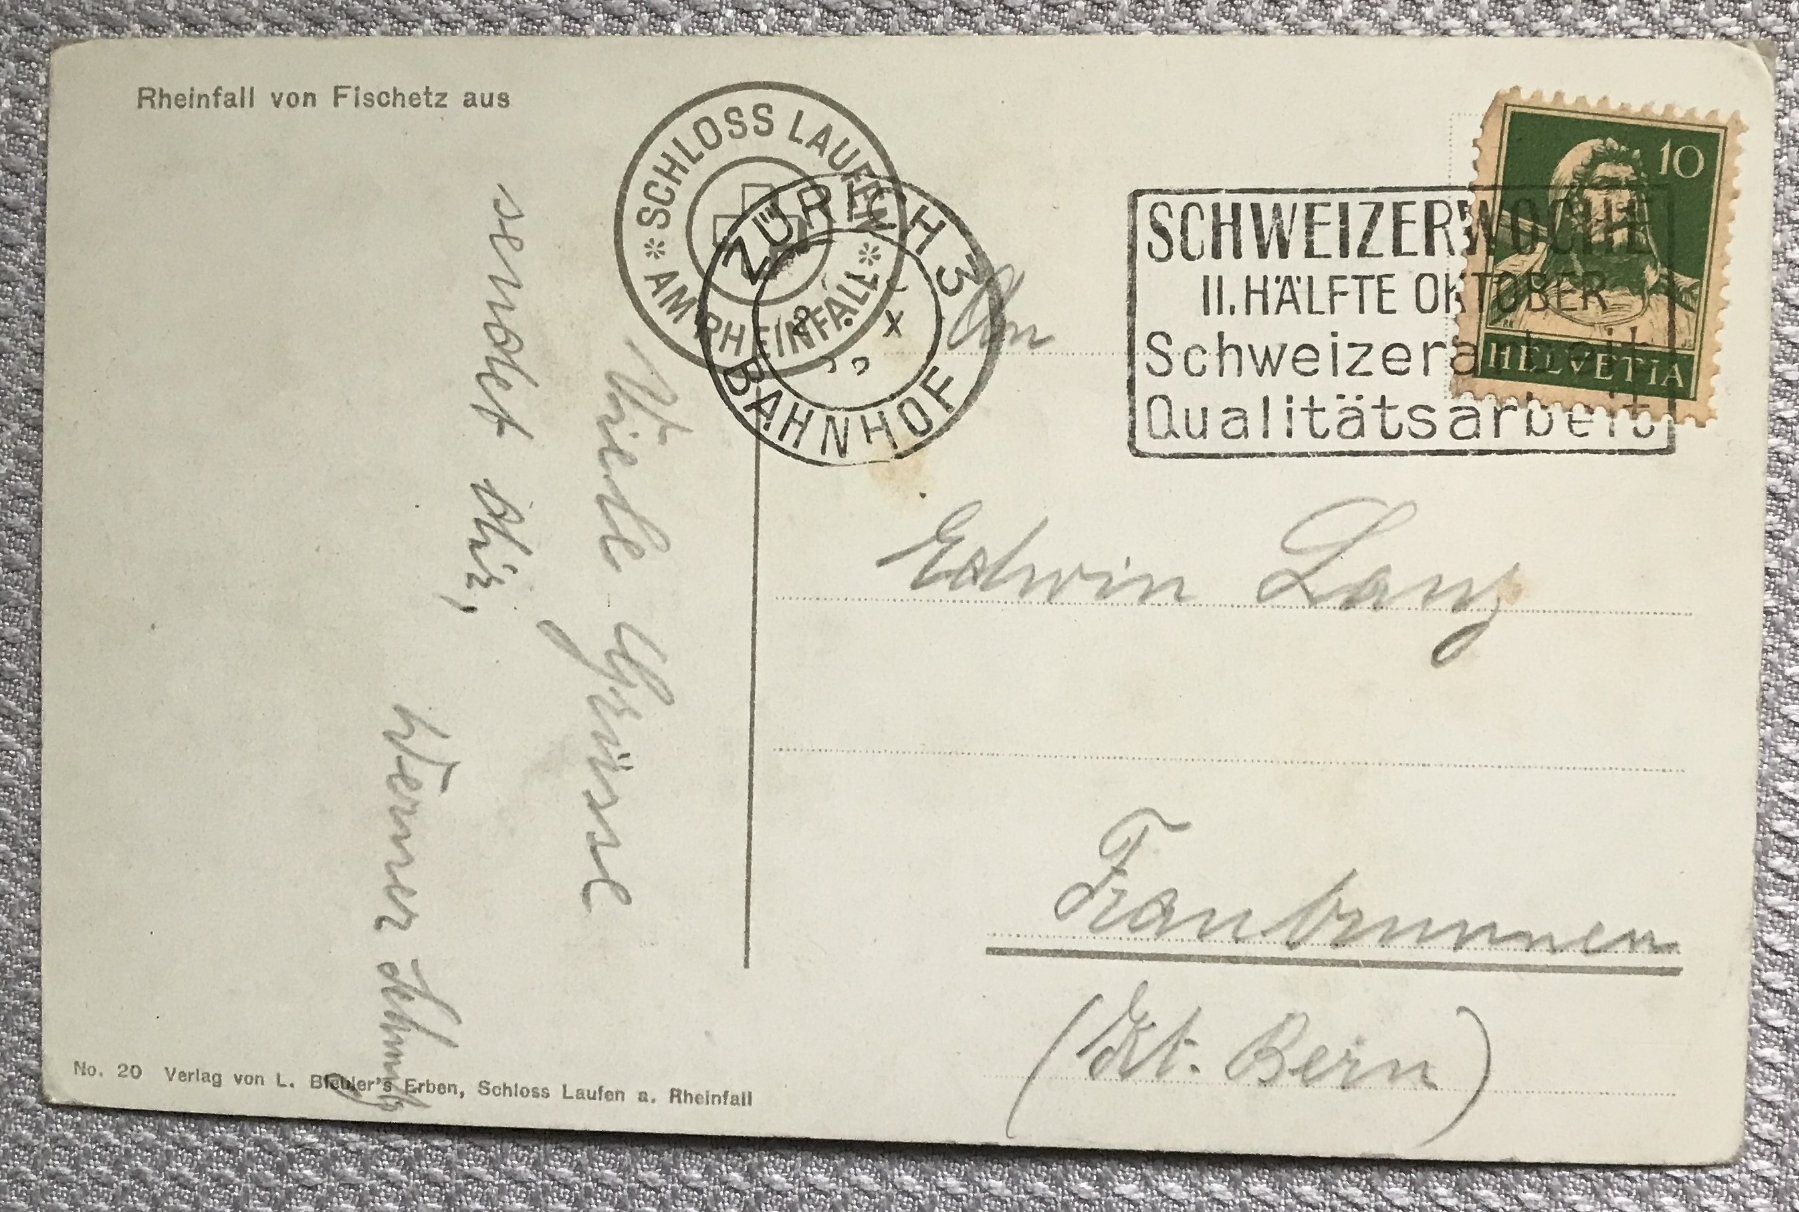 Rheinfall von Fischetz aus
* SCHLOSS LAUFEN *
AM RHEINFALL
ZÜRICH 3
BAHNHOF
X
SCHWEIZERWOCHE
II. HÄLFTE OKTOBER
Schweizerarbeit
Qualitätsarbeit
10
HELVETIA
Viele Grüsse
sendet dir,
Werner
An
Edwin Lanz
Fraubrunnen
(Kt. Bern)
No. 20 Verlag von L. Bleuler's Erben, Schloss Laufen a. Rheinfall